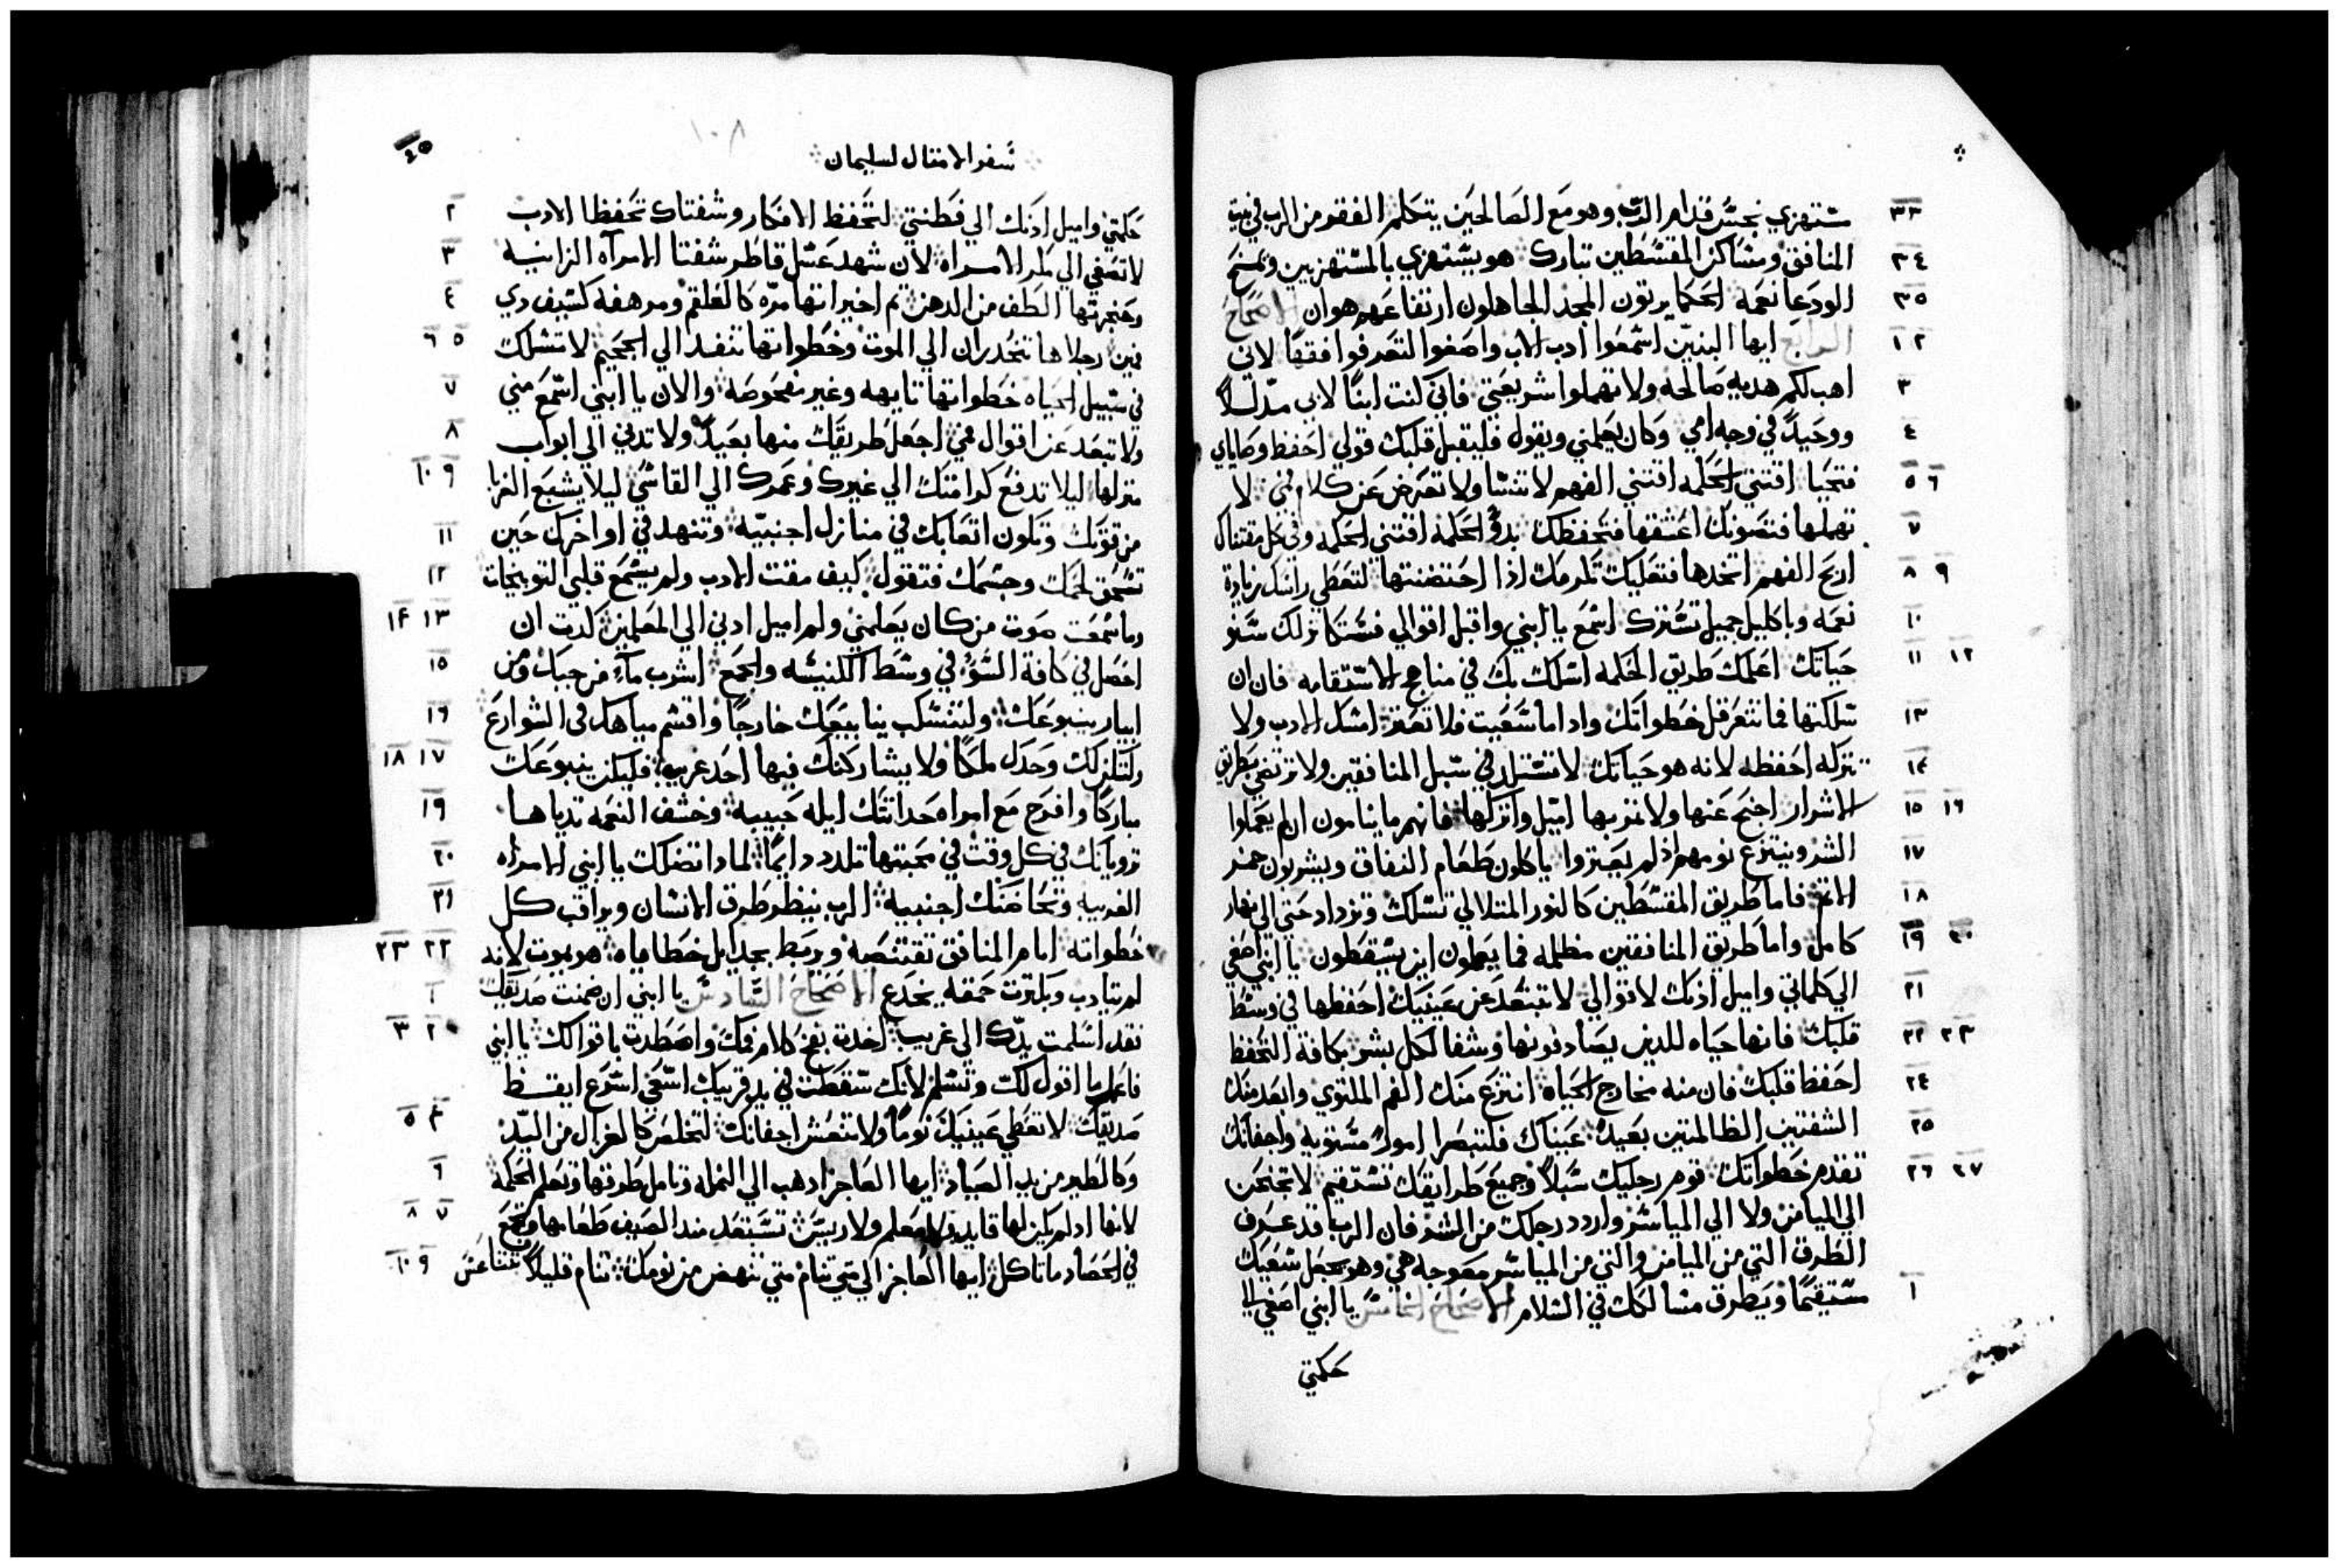 ٣٣ ستهزي نجس قدام الرب وهو مع الصالحين يتكلم الفقر من الرب في بيت
٣٤ المنافق ومساكن المقسطين تبارك هو يستهزي بالمستهزيين ويمنح
٣٥ الودعا نعمه الحكما يرتون المجد الجاهلون ارتفاعهم هوان الاصحاح
١ ٢ الرابع ايها البنين اسمعوا ادب الاب واصغوا لتعرفوا فقهًا لاني
٣ اهب لكم هديه صالحه ولا تهملوا شريعتي فاني كنت ابنًا لابي مدللًا
٤ ووحيدًا في وجه امي وكان يعلمني ويقول فليقبل قلبك قولي احفظ وصاياي
٥ ٦ فتحيا اقتني الحكمه اقتني الفهم لا تنسا ولا تعرض عن كلام فمي لا
٧ تهملها فتصونك اعشقها فتحفظك بدؤ الحكمه اقتني الحكمه وفي كل مقتناك
٨ ٩ اربح الفهم اتخدها فتعليك تكرمك اذا احتضنتها لتعطي راسك زيادة
١٠ نعمه وباكليل جميل تسترك اسمع يا ابني واقبل اقوالي فستكاثر لك سنو
١١ ١٢ حياتك اعلمك طريق الحكمه اسلك بك في مناهج الاستقامه فان ان
١٣ سلكتها فما تتعرقل خطواتك واداما سعيت فلا تعثر امسك الادب ولا
١٤ تتركه احفظه لانه هو حياتك لا تستلد في سبل المنافقين ولا ترتضي بطريق
١٥ ١٦ الاشرار اجنح عنها ولا تمر بها اميل واتركها فانهم ما ينامون ان لم يعملوا
١٧ الشر وينتزع نومهم اذ لم يعتروا ياكلون طعام النفاق ويشربون خمر
١٨ الاتم فاما طريق المقسطين كالنور المتلالي تسلك وتزداد حتي الي نهار
١٩ ٢٠ كامل واما طريق المنافقين مظلمه فما يعلمون اين يسقطون يا ابني اصغي
٢١ الي كلماتي واميل ادنك لاقوالي لا تبتعد عن عينيك احفظها في وسط
٢٢ ٢٣ قلبك فانها حياه للدين يصادفونها وشفا لكل بشر بكافة التحفظ
٢٤ احفظ قلبك فان منه مخارج الحياه انتزع منك الفم الملتوي وابعد منك
٢٥ الشفتين الظالمتين بعيدًا عيناك فلتبصرا امورًا مستويه واجفانك
٢٦ ٢٧ تتقدم خطواتك قوم رجليك سبلًا وجميع طرايقك تستقيم لا تجنحن
الي الميامن ولا الي المياسر واردد رجلك من الشر فان الرب قد عرف
الطرق التي من الميامن والتي من المياسر معوجه هي وهو يجعل سعيك
١ مستقيمًا ويطرق مسالكك في السلام الاصحاح الخامس يا ابني اصغي الي
حكمتي
سفر الامتال لسليمان
١٠٨
٢ حكمتي واميل ادنك الي فطنتي لتحفظ الافكار وشفتاك تحفظا الادب
٣ لا تصغي الي مكر الامراه لان شهد عسل قاطر شفتا الامراه الزانيه
٤ وحنجرتها الطف من الدهن تم اخيرانها مره كالعلقم ومرهفه كسيف دي
٥ ٦ فمين رجلاها تتحدران الي الموت وخطواتها تنفد الي الجحيم لا تسلك
٧ في سبيل الحياه خطواتها تايهه وغير مفحوصه والان يا ابني اسمع مني
٨ ولا تبعد عن اقوال فمي اجعل طريقك منها بعيدًا ولا تدني الي ابواب
٩ ١٠ منزلها ليلا تدفع كرامتك الي غيرك وعمرك الي القاسي ليلا يشبع الغربا
١١ من قوتك وتكون اتعابك في منازل اجنبيه وتتنهد في اواخرك حين
١٢ تسحق لحمك وجسمك فتقول كيف مقت الادب ولم يسمع قلبي التوبيخات
١٣ ١٤ وما سمعت صوت من كان يعلمني ولم اميل ادني الي المعلمين كدت ان
١٥ احصل في كافة السؤ في وسط الكنيسه والجمع اشرب ماءً من جبك ومن
١٦ ابيار ينبوعك ولتنسكب ينابيعك خارجًا واقسم مياهك في الشوارع
١٧ ١٨ ولتكن لك وحدك ملكًا ولا يشاركنك فيها احد غريب فليكن ينبوعك
١٩ مباركًا وافرح مع امراه حداتتك ايله حبيبه وخشف النعمه تدياها
٢٠ ترويانك في كل وقت في محبتها تلدد دايمًا لمادا تضلك يا ابني الامراه
٢١ الغريبه وتحاضنك اجنبيه الرب ينظر طرق الانسان ويراقب كل
٢٢ ٢٣ خطواته امام المنافق تقتنصه ويربط بحبايل خطاياه هو يموت لانه
١ لم يتادب وبكترت حمقه يخدع الاصحاح السادس يا ابني ان ضمنت صديقك
٢ ٣ فقد اسلمت يدك الي غريب اخدت بفخ كلام فمك واصطدت باقوالك يا ابني
فاعمل ما اقول لك وتسلم لانك سقطت في يد قريبك اسعي اسرع ايقظ
٤ ٥ صديقك لا تعطي عينيك نومًا ولا تنعس اجفانك لتخلص كالغزال من اليد
٦ وكالطير من يد الصياد ايها العاجز ادهب الي النمله وتامل طرقها وتعلم الحكمه
٧ ٨ لانها اد لم يكن لها قايد ولا معلم ولا رييس تستعد مند الصيف طعامها وتجمع
٩ ١٠ في الحصاد ما تاكل ايها العاجز الي متي تنام متي تنهض من نومك تنام قليلًا تتناعس